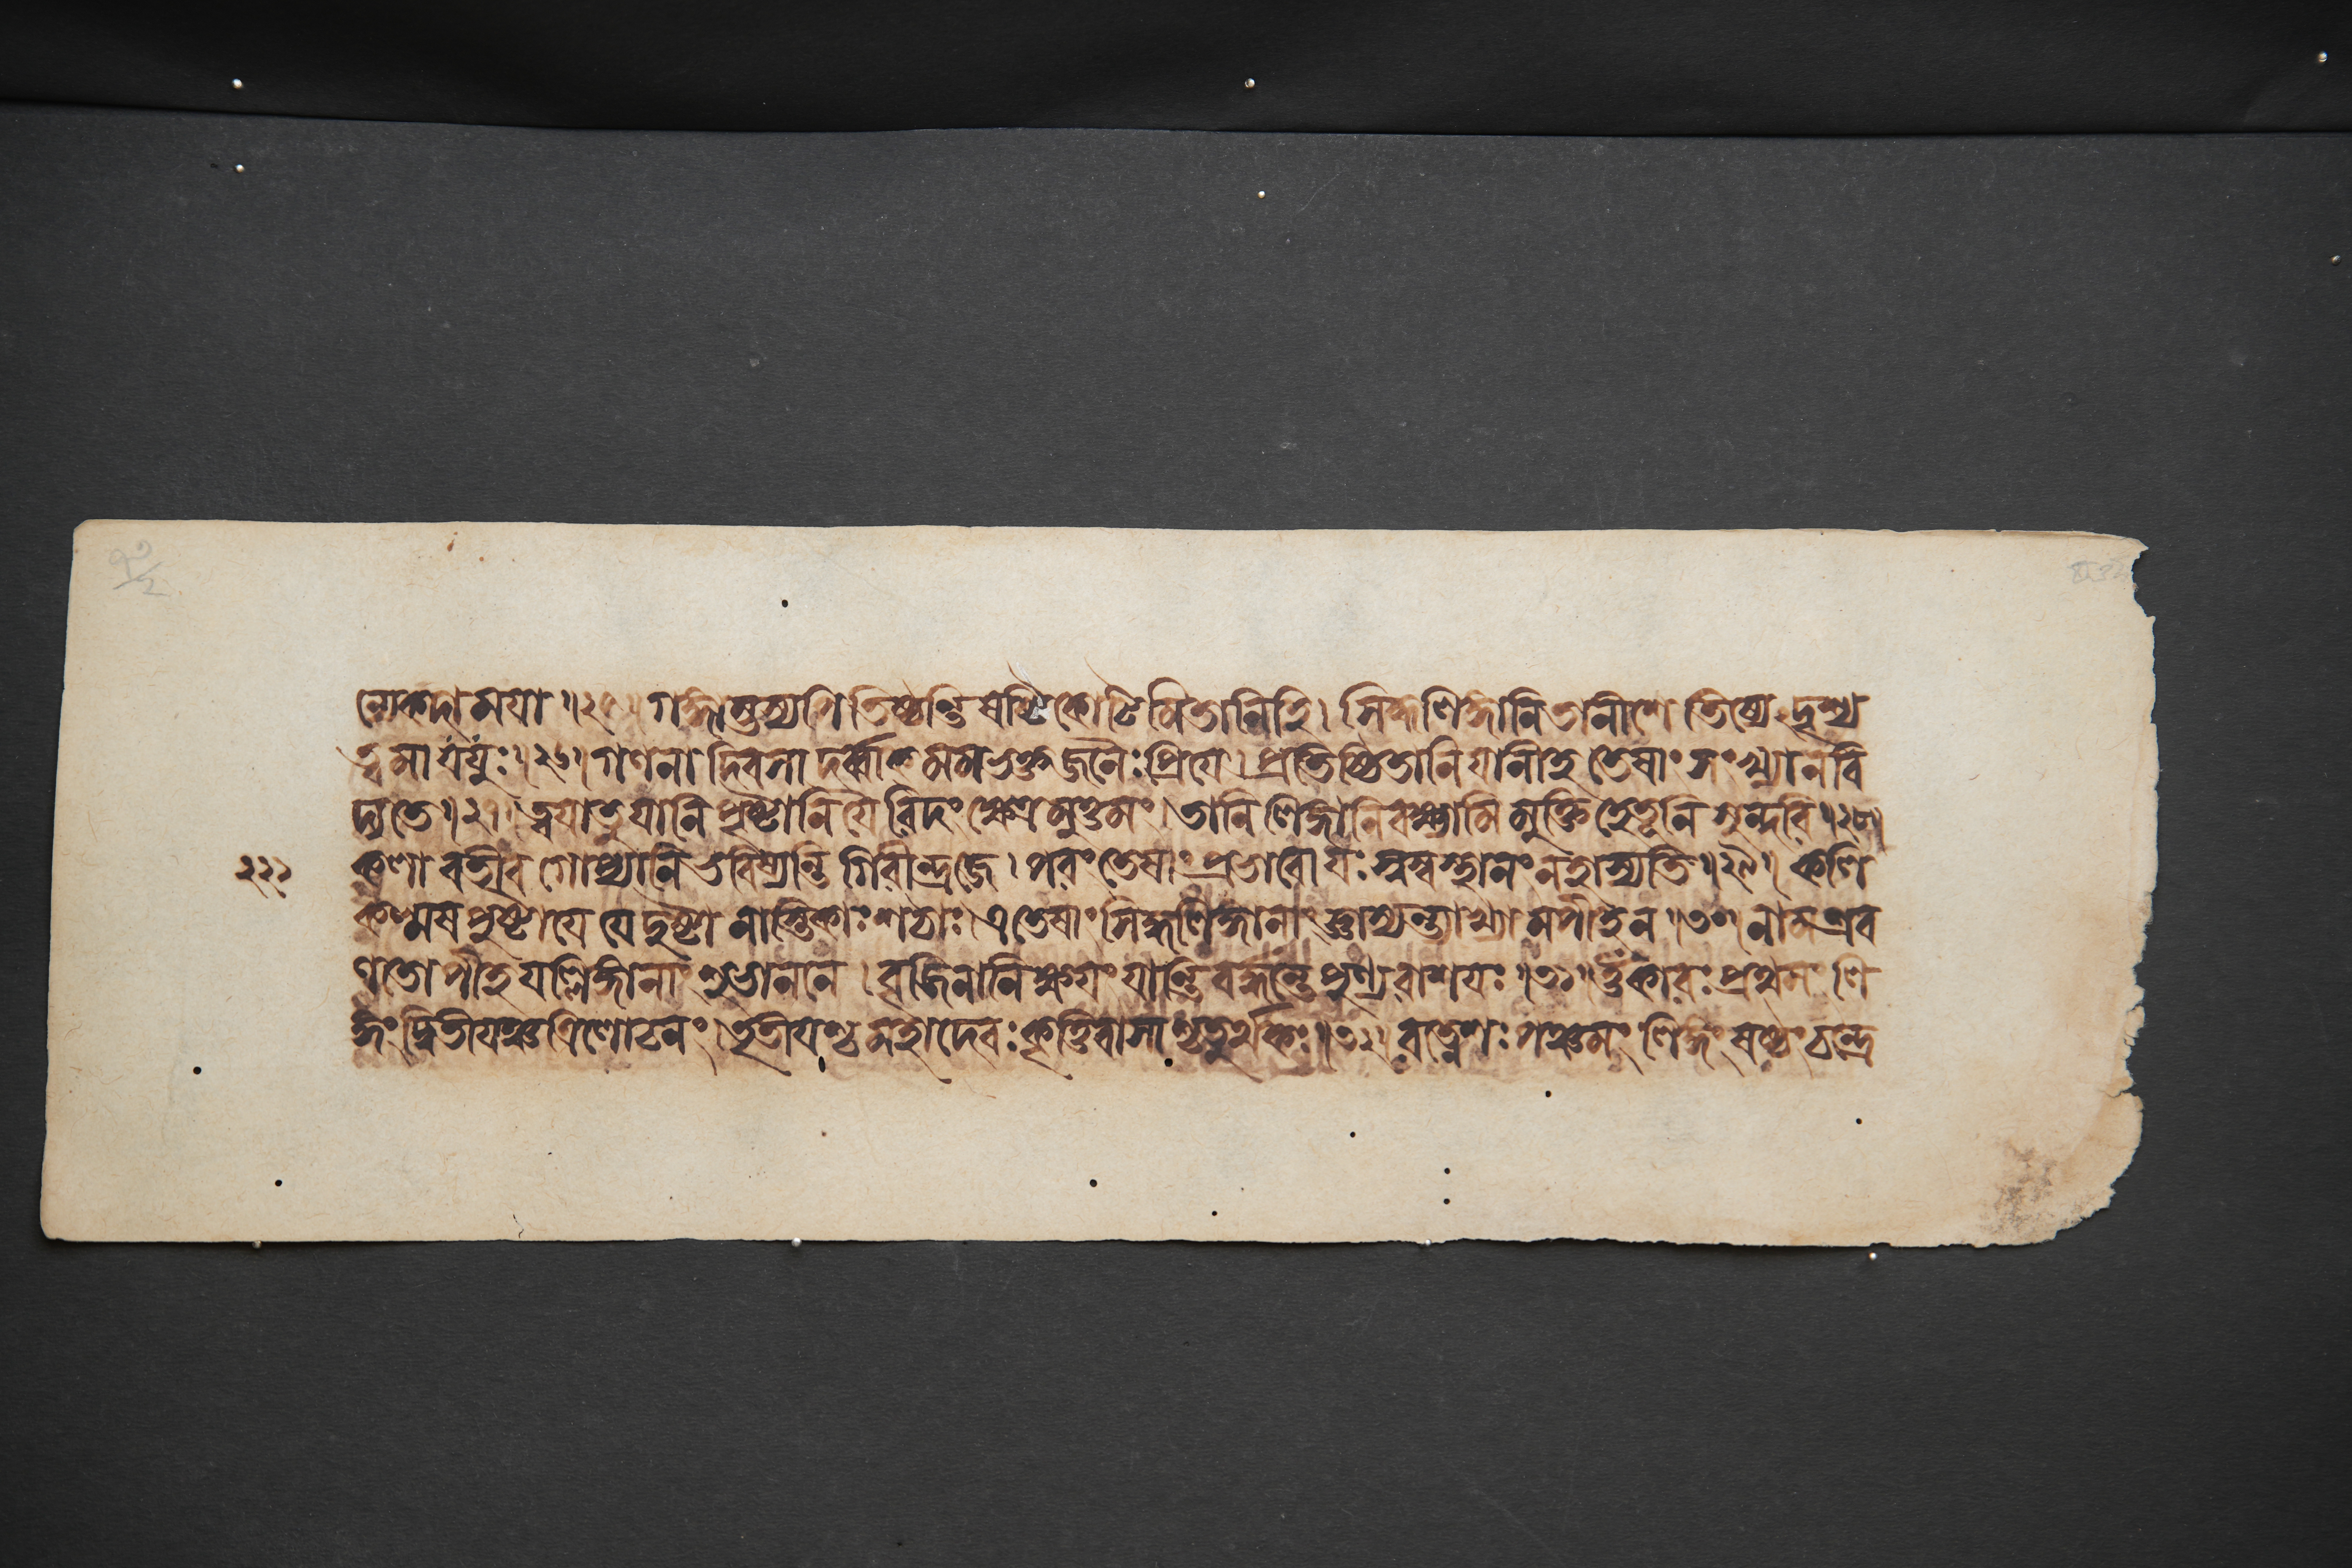 ন্যেকদা ময়া ॥২৫॥ গঙ্গাম্ভস্যপি তিষ্ঠন্তি ষষ্টিকোটিমিতানিহি। সিদ্ধলিঙ্গানি তানীশে তিষ্যে দৃশ্য
ত্বমাযযুঃ॥২৬॥ গণনাদিবসাদর্ব্বাঙ্মমভক্তজনৈঃপ্রিয়ে। প্রতিষ্ঠিতানি যানীহ তেষাং সংখ্যা ন বি
দ্যতে॥২৭॥ ত্বয়াতু যানি পৃষ্টানি যৈরিদং ক্ষেত্রমুত্তমং। তানি লিঙ্গানি বক্ষ্যামি মুক্তিহেতূনি সুন্দরি॥২৮॥
২২১ কলাবতীব গোপ্যানি ভবিষ্যন্তি গিরীন্দ্রজে। পরং তেষাং প্রভাবো যঃ স্বস্বস্থানং ন হাস্যতি॥২৯॥ কলি
কল্মষপুষ্টা যে যে দুষ্টা নাস্তিকাঃ শঠাঃ। এতেষাং সিদ্ধলিঙ্গানাং জ্ঞাস্যন্ত্যাখ্যামপীহ ন॥৩০॥ নামশ্রব
ণতোপীহ যল্লিঙ্গানাং শুভাননে। বৃজিনানি ক্ষয়ং যান্তি বর্দ্ধন্তে পুণ্যরাশয়ঃ॥৩১॥ ওঁকারঃ প্রথমং লি
ঙ্গং দ্বিতীয়ঞ্চ ত্রিলোচনং। তৃতীয়শ্চ মহাদেবঃ কৃত্তিবাসাশ্চতুর্থকঃ॥৩২॥ রত্নেশঃ পঞ্চমং লিঙ্গং ষষ্ঠং চন্দ্রে